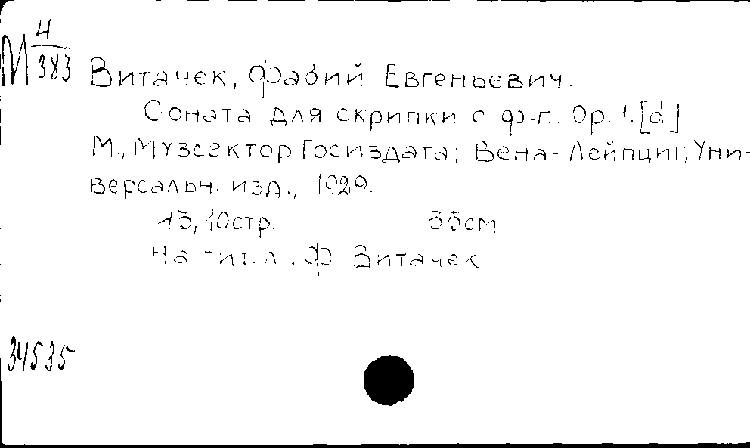 М 4/383
Витачек, Фабий Евгеньевич.
Соната для скрипки с ф-п. Ор. 1. [d]
М., Музсектор Госиздата; Вена-Лейпциг; Уни-
версальн. изд., 1929.
13, 10стр. 35см
На тит. л. Ф Витачек
34535